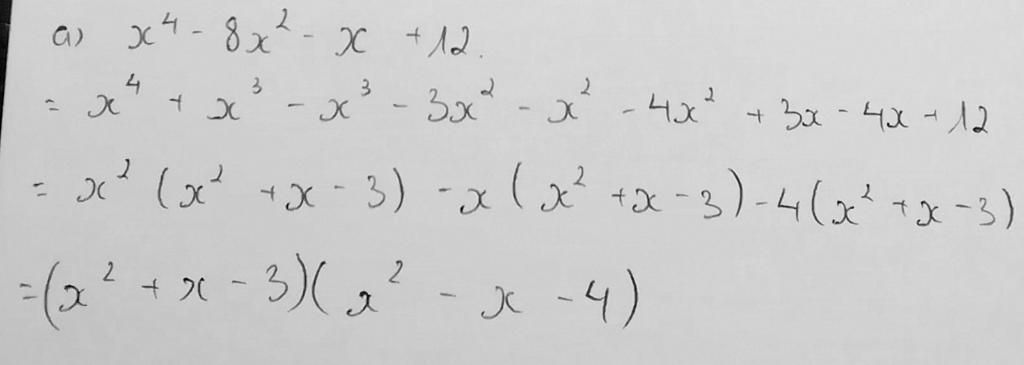 a) x⁴ - 8x² - x + 12.
= x⁴ + x³ - x³ - 3x² - x² - 4x² + 3x - 4x + 12
= x² (x² + x - 3) - x (x² + x - 3) - 4 (x² + x - 3)
= (x² + x - 3)(x² - x - 4)